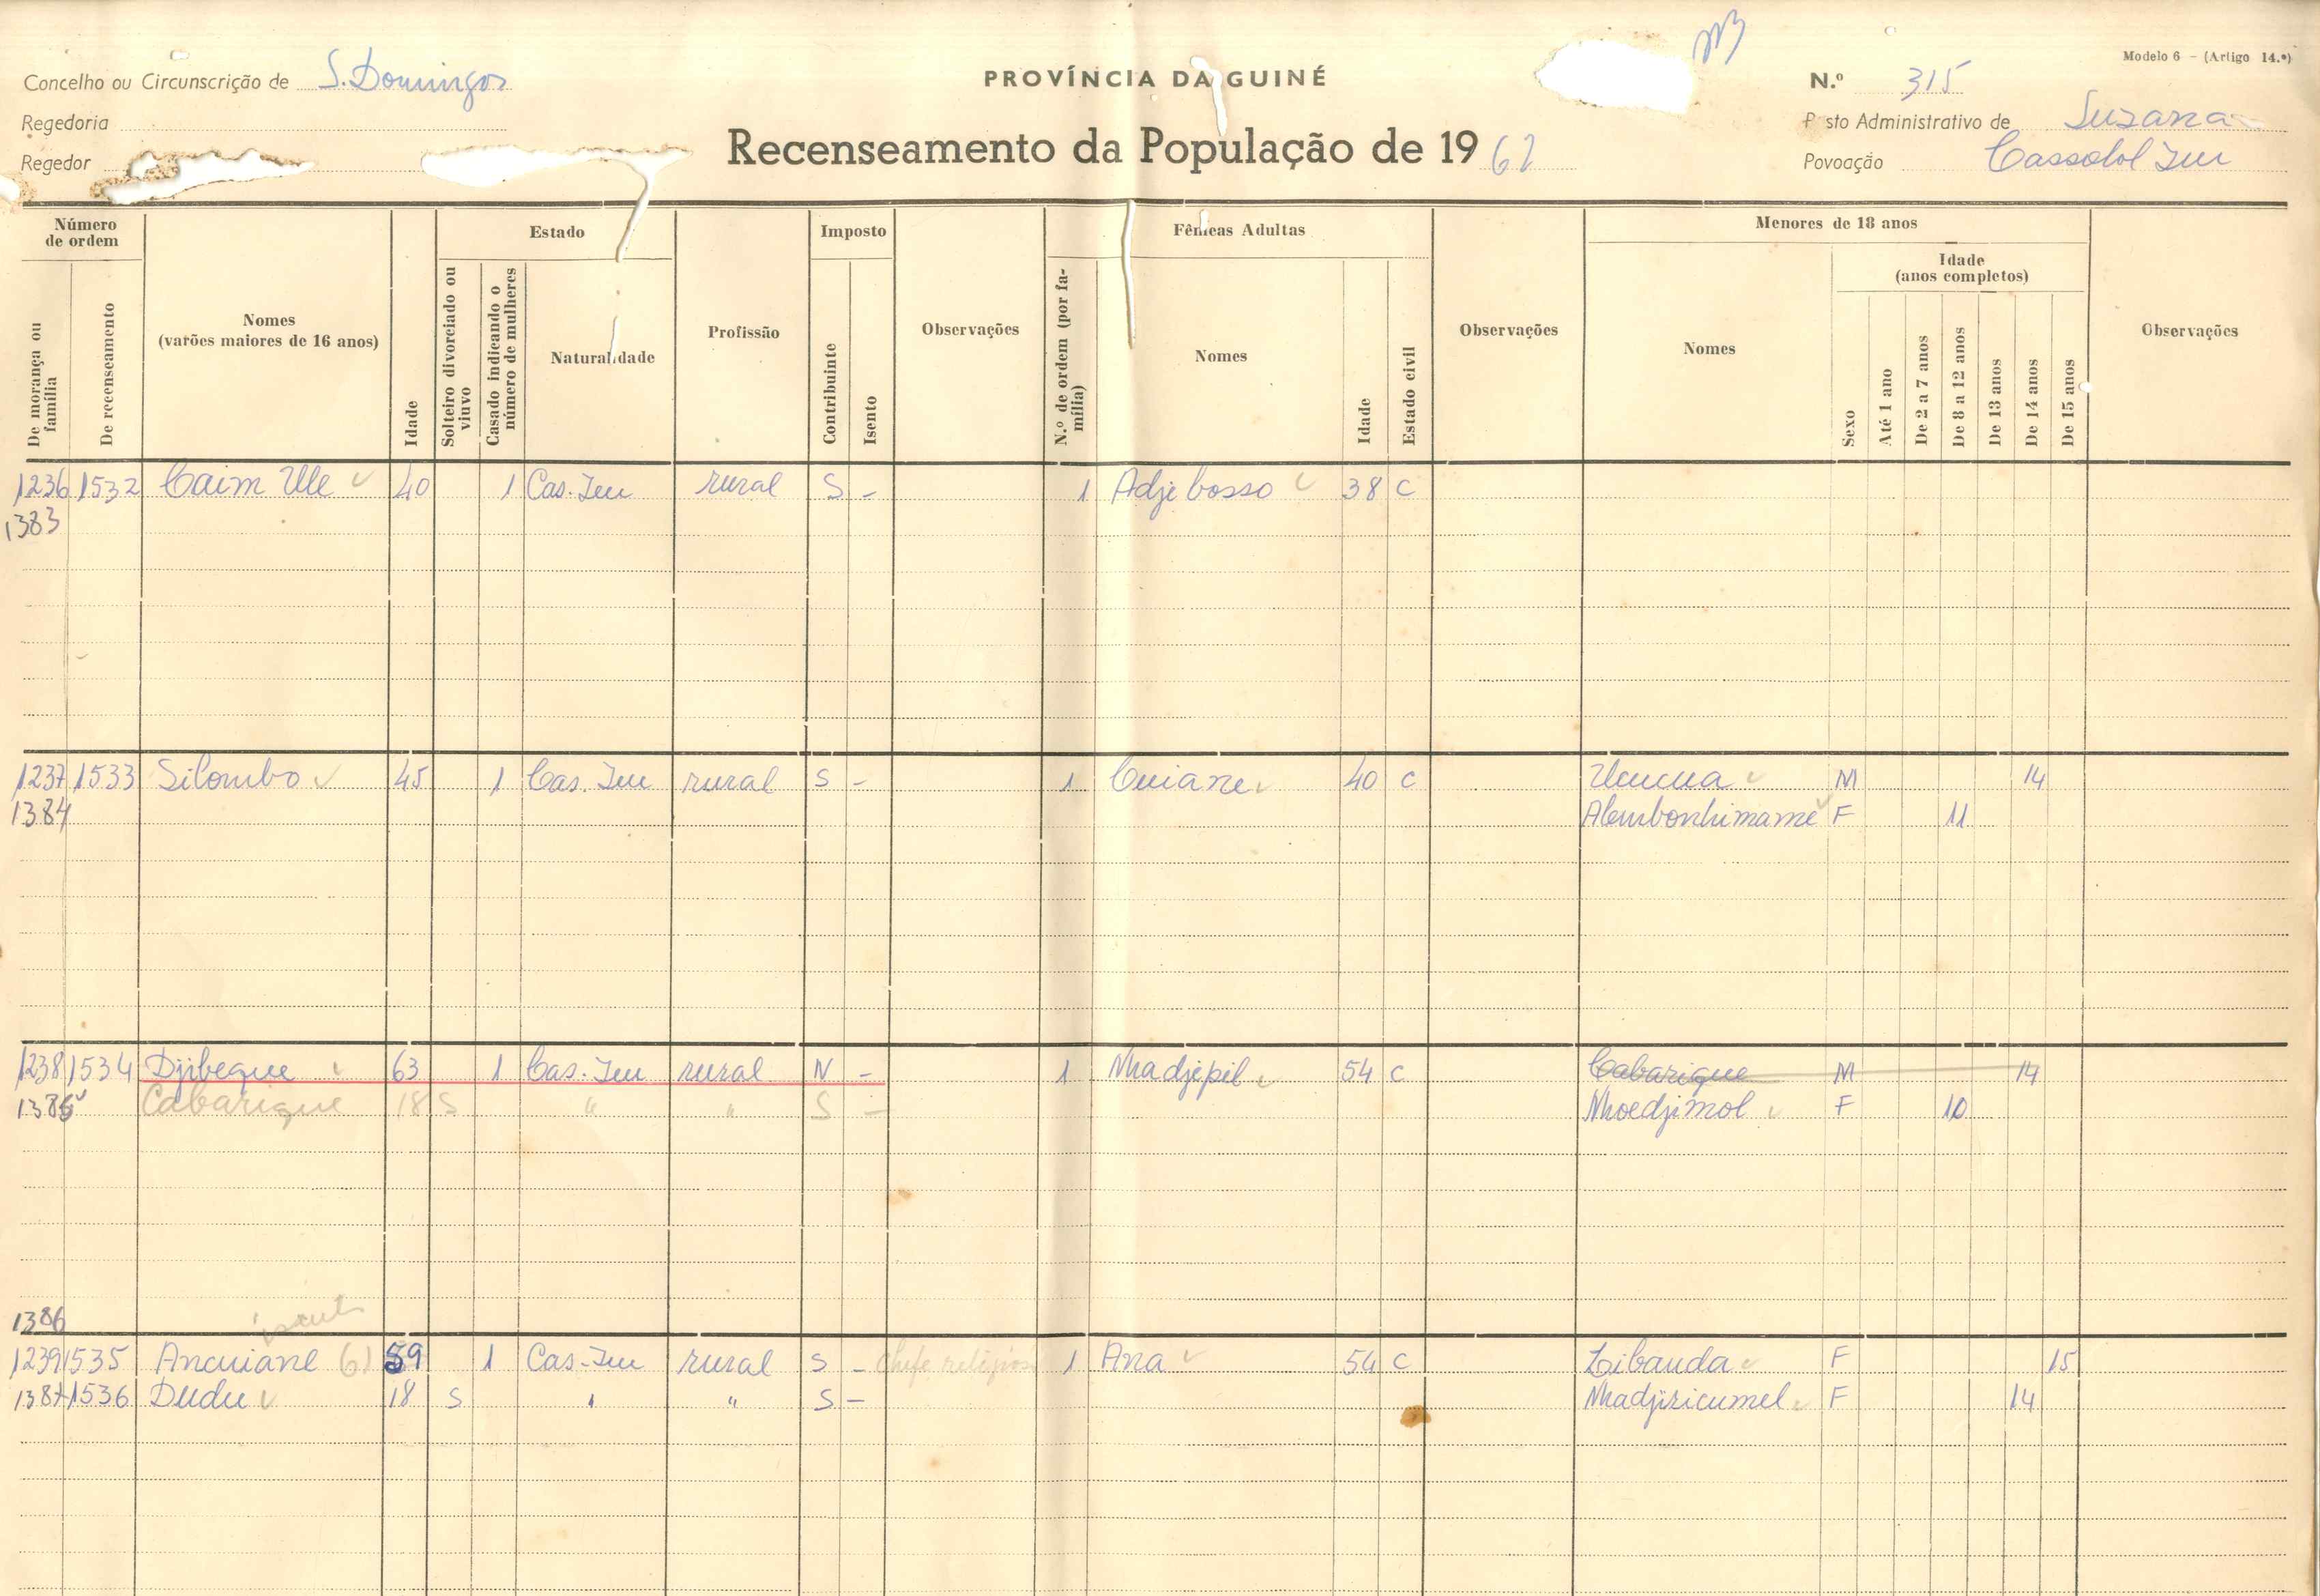 Modelo 6 - (Artigo 14.º)
Concelho ou Circunscrição de S. Domingos
PROVÍNCIA DA GUINÉ
N.º 315
Regedoria
Posto Administrativo de Suzana
Regedor
Recenseamento da População de 1962
Povoação Cassolol Jeu
Número de ordem
Estado
Imposto
Fêmeas Adultas
Menores de 18 anos
Idade (anos completos)
De morança ou família
De recenseamento
Nomes (varões maiores de 16 anos)
Idade
Solteiro divorciado ou viuvo
Casado indicando o número de mulheres
Naturalidade
Profissão
Contribuinte
Isento
Observações
N.º de ordem (por família)
Nomes
Idade
Estado civil
Observações
Nomes
Sexo
Até 1 ano
De 2 a 7 anos
De 8 a 12 anos
De 13 anos
De 14 anos
De 15 anos
Observações
1236 1532 Caim Ule 40 1 Cas. Jeu rural S - 1 Adje bosso 38 C
1383
1237 1533 Silombo 45 1 Cas. Jeu rural S - 1 Cuiane 40 C Ucucua M 14
1384 Alembonhimame F 11
1238 1534 Djibeque 63 1 Cas. Jeu rural N - 1 Nhadjepil 54 C Cabarique M 14
1385 Cabarique 18 S " " S - Nhoedjimol F 10
1386
1239 1535 Ancuiane 61 59 1 Cas. Jeu rural S - Chefe religioso 1 Ana 54 C Libauda F 15
1387 1536 Dudu 18 S " " S - Nhadjiricumel F 14